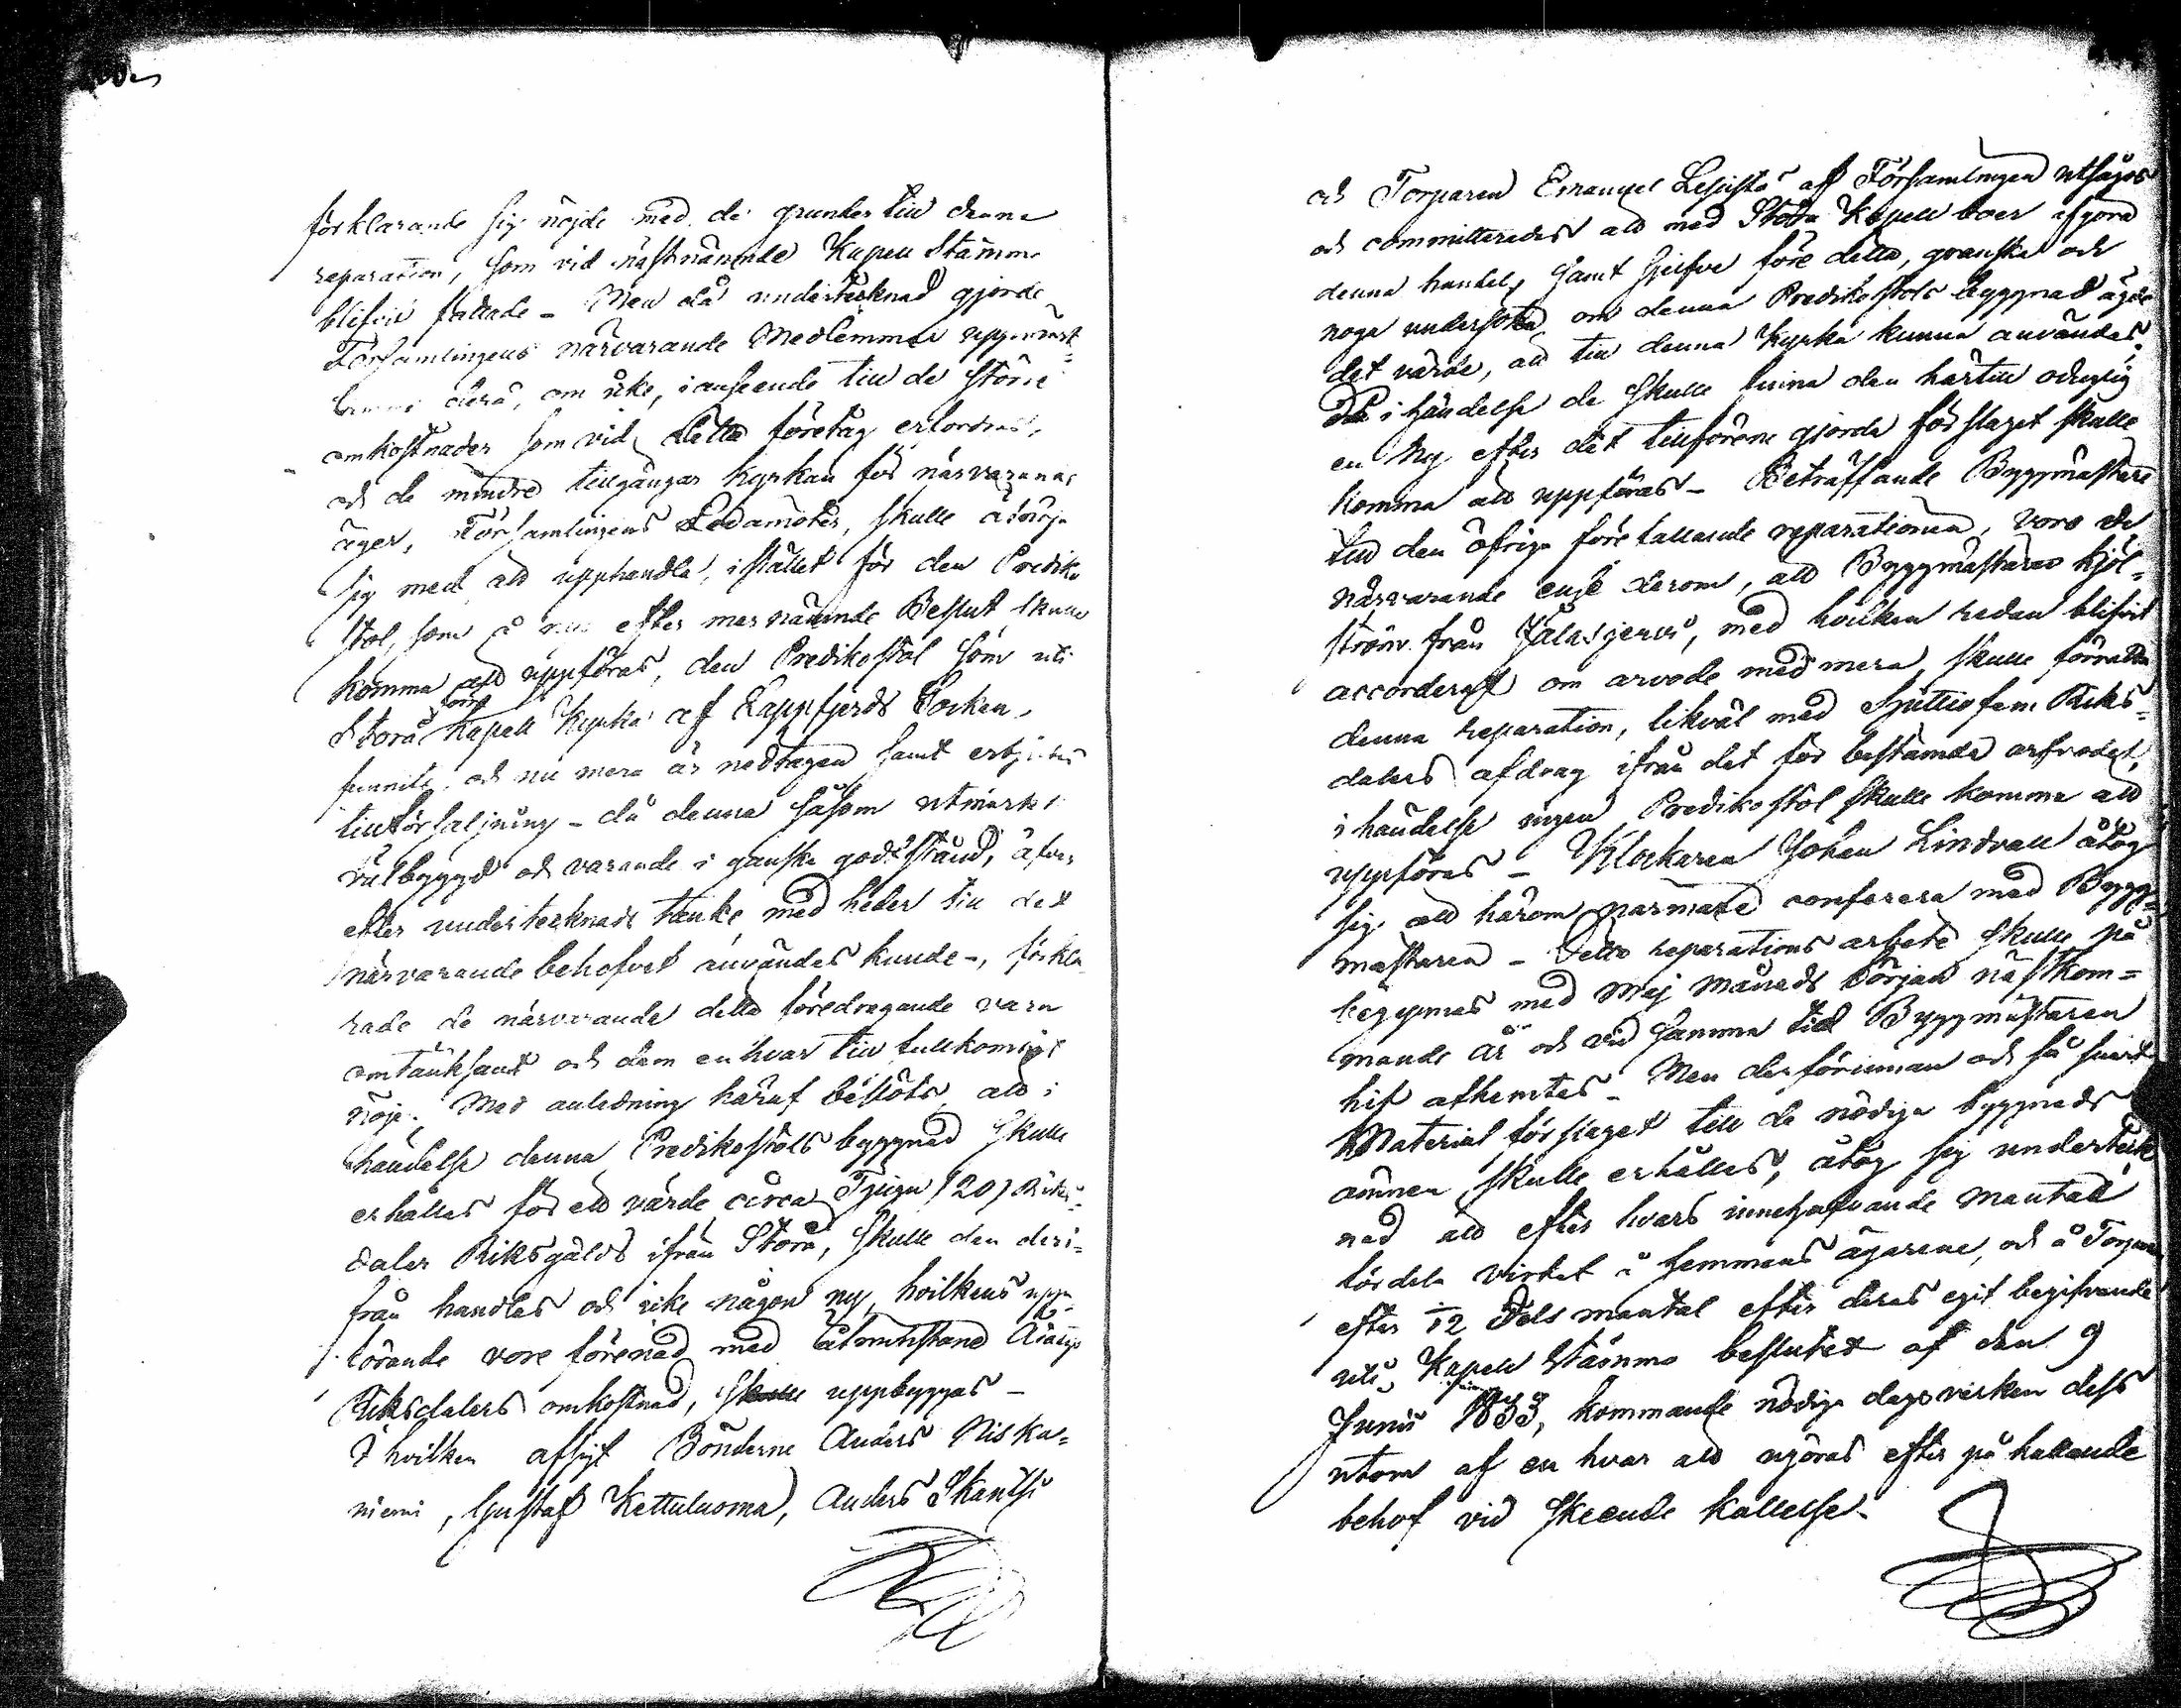 förklarande sig nöjde med de grunder till denna
reparation, som vid nästnämnde Kapell Stämma
blifvit fattade - Men då undertecknad gjorde
Församlingens närvarande Medlemmar uppmärk=
samme derå, om icke, i anseende till de större
omkostnader som vid detta företag erfordras,
och de mindre tillgångar kyrkan för närvarande
äger, Församlingens Ledamöter, skulle åtnöja
sig med att upphandla, i stället för den Prediko
stol, som å nyo efter mernämnde Beslut skulle
komma att uppföras, den Predikostol som uti
Storå
förra
Kapell Kyrka af Lappfjerds Socken
funnits, och nu mera är nedtagen samt erbjudes
till försäljning - då denna såsom utmärkt
välbyggd och varande i ganska godt stånd, äfven
efter undertecknads tanke med heder till det
närvarande behofvet användas kunde -, förkla
rade de närvarande detta föredragande vara
omtänksamt och dem en hvar till fullkomligt
nöje. Med anledning häraf beslöts att i
händelse denna Predikostols byggnad skulle
erhållas för ett värde circa Tjugu (20) Riks=
daler Riksgälds ifrån Storå, skulle den deri=
från handlas och icke någon ny, hvilkens upp=
förande vore förenad med åtminstone
Riksdalers omkostnad, skulle uppbyggas -
I hvilken afsigt Bönderne Anders Niska=
niemi, Gustaf Kettuluoma, Anders Skantsi
och Torparen Emanuel Lepistö af Församlingen utsågos
och committerades att med Storå Kapell boer afgöra
denna handel, samt sjelfve före detta, granska och
noga undersöka, om denna Predikostols byggnad ägde
det värde, att till denna Kyrka kunna användas.
Då i händelse de skulle finna den härtill oduglig
en Ny efter det tillförene gjorda förslaget skulle
komma att uppföras - Beträffande Byggmästare
till den öfriga företallande reparationen, voro de
närvarande enige derom, att Byggmästaren Kjöl=
ström från Jalasjervi, med hvilken redan blifvit
accorderat om arvode med mera, skulle förrätta
denna reparation, likväl med Sjuttiofem Riks=
dalers afdrag ifrån det för bestämda arfvodet,
i händelse ingen Predikostol skulle komma att
uppföras - Klockaren Johan Lindvall åtog
sig att härom närmare conferera med Bygg=
mästaren - Detta reparations arbete skulle på
begynnas med Maj Månads början nästkom=
mande år och vid samma tid Byggmästaren
hit afhemtas - Men derförinnan och så snart
Material förslaget till de nödiga byggnads
ämnen skulle erhållas, åtog sig underteck
nad att efter hvars innehafvande mantal
fördela virket å hemmans ägarene, och å Torparne
efter 1/12 Dels mantal efter deras egit begifvande
uti Kapell Stämmo beslutet af den 9
Junii 1833, kommande nödiga dagsverken dess
utom af en hvar att utgöras efter på kallande
behof vid skeende kallelse.